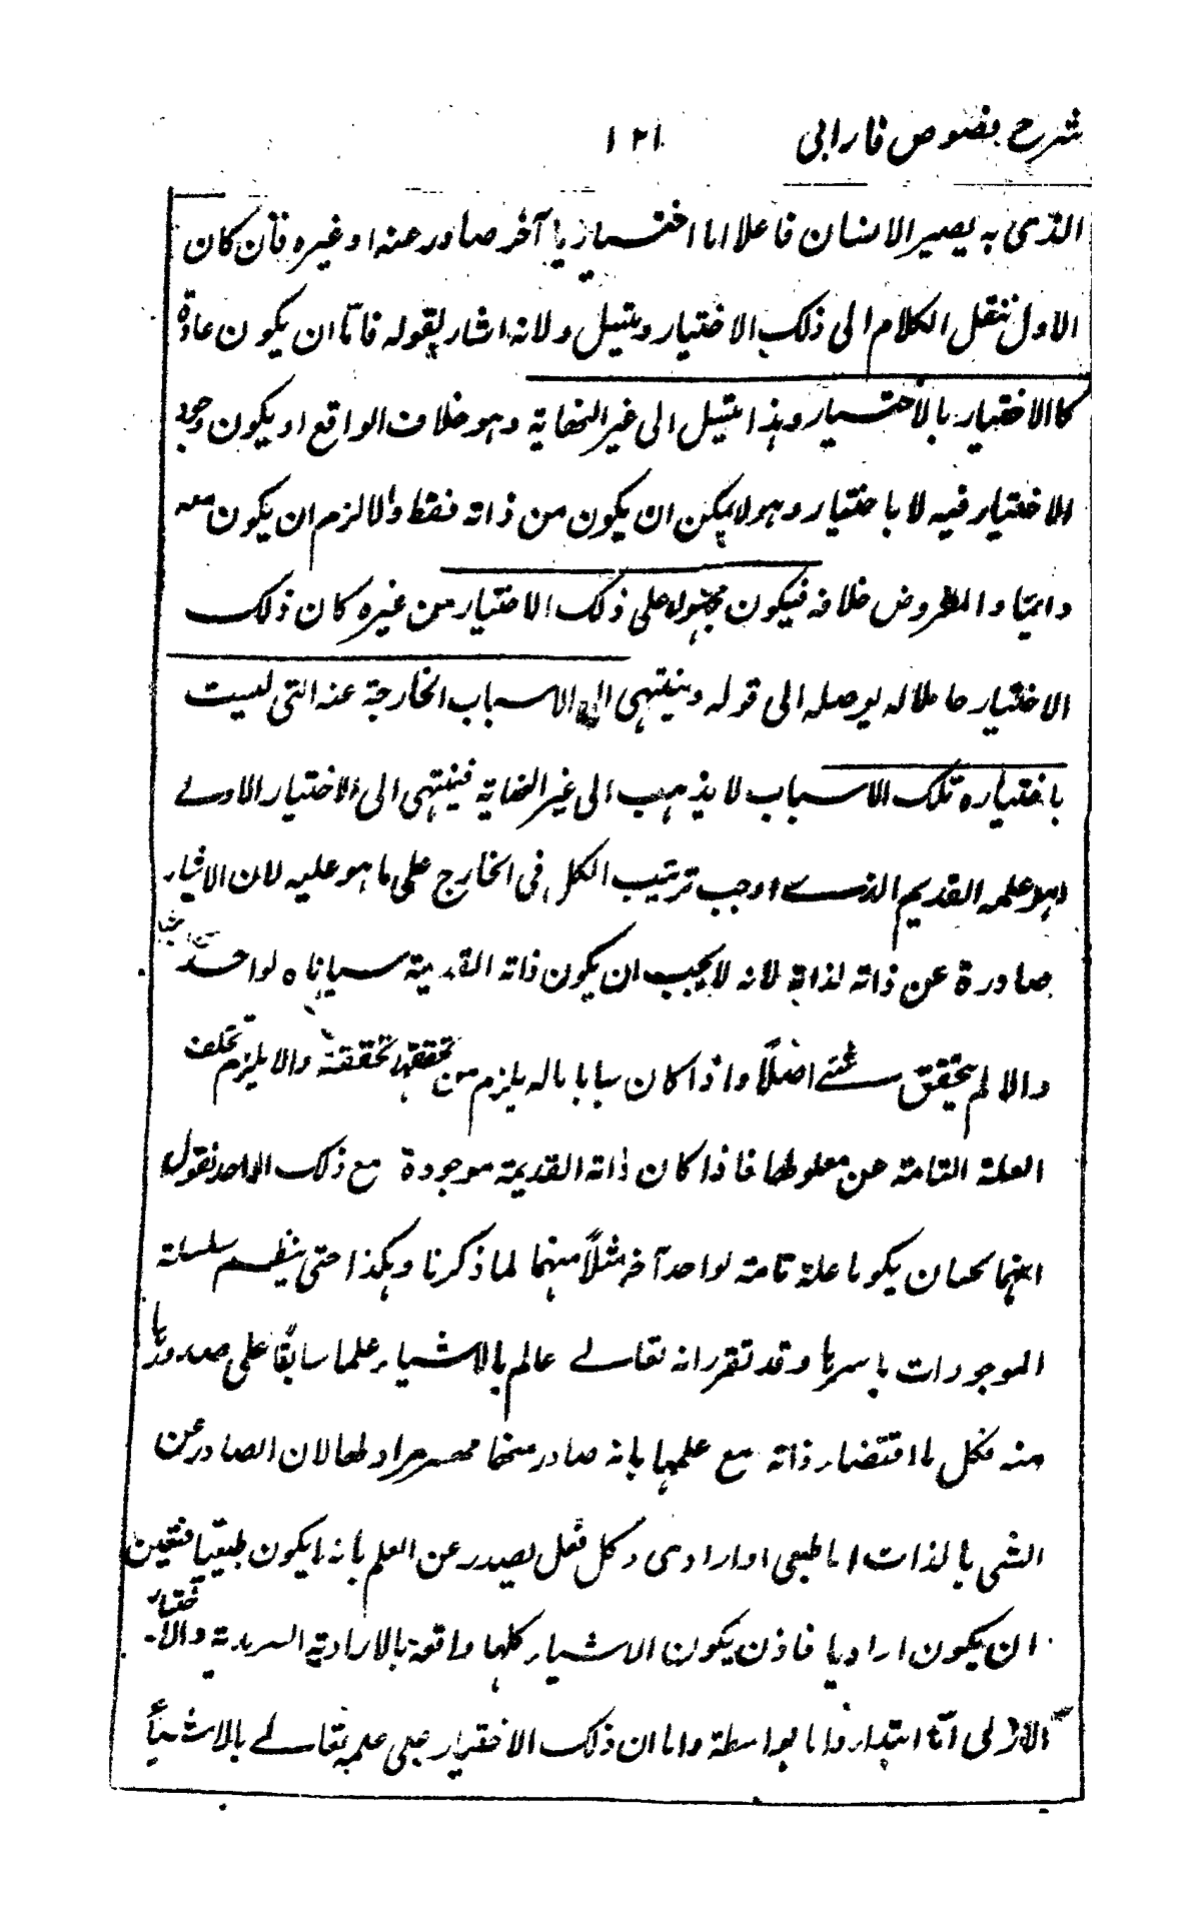 شرح فصوص فارابی ١٢١
الذی به یصیر الانسان فاعلا اما اختیار یا آخر صادر عنه او غیره فان کان
الاول ننقل الکلام الی ذلک الاختیار ویتسل ولانه اشار بقوله فاما ان یکون عادة
کالاختیار بالاختیار وهذا یتسل الی غیر النهایة وهو خلاف الواقع او یکون وجود
الاختیار فیه لا باختیار وهو لا یمکن ان یکون من ذاته فقط والا لزم ان یکون معه
دائما والمفروض خلافه فیکون مجبولا علی ذلک الاختیار من غیره کان ذلک
الاختیار حاملا له یوصله الی قوله وینتهی الی الاسباب الخارجة عنه التی لیست
باختیاره تلک الاسباب لا یذهب الی غیر النهایة فینتهی الی الاختیار الاولے
وهو علمه القدیم الذے اوجب ترتیب الکل فی الخارج علی ما هو علیه لان الاشیاء
صادرة عن ذاته لذاته لانه لا یجب ان یکون ذاته القدیمة سببا تاما لواحد
والا لم یتحقق شئے اصلاً واذا کان سببا تاما له یلزم من تحققها تحققه والا یلزم تخلف
العلة التامة عن معلولها فاذا کان ذاته القدیمة موجودة مع ذلک الواحد نقول
انهما یجب ان یکونا علة تامة لواحد آخر مثلاً منهما لما ذکرنا وهکذا حتی ینتظم سلسلة
الموجودات باسرها وقد تقرر انه تعالے عالم بالاشیاء علما سابقا علی صدورها
منه فکل ما اقتضاء ذاته مع علمها بانه صادر منها فهو مراد لها لان الصادر عن
الشی بالذات اما طبعی او ارادی وکل فعل یصدر عن العلم بانه لا یکون طبعیا فتعین
ان یکون ارادیا فاذن یکون الاشیاء کلها واقعة بالارادة السرمدیة والاختیار
الازلی اما ابتداء واما بواسطة واما ان ذلک الاختیار علی علمه تعالے بالاشیاء